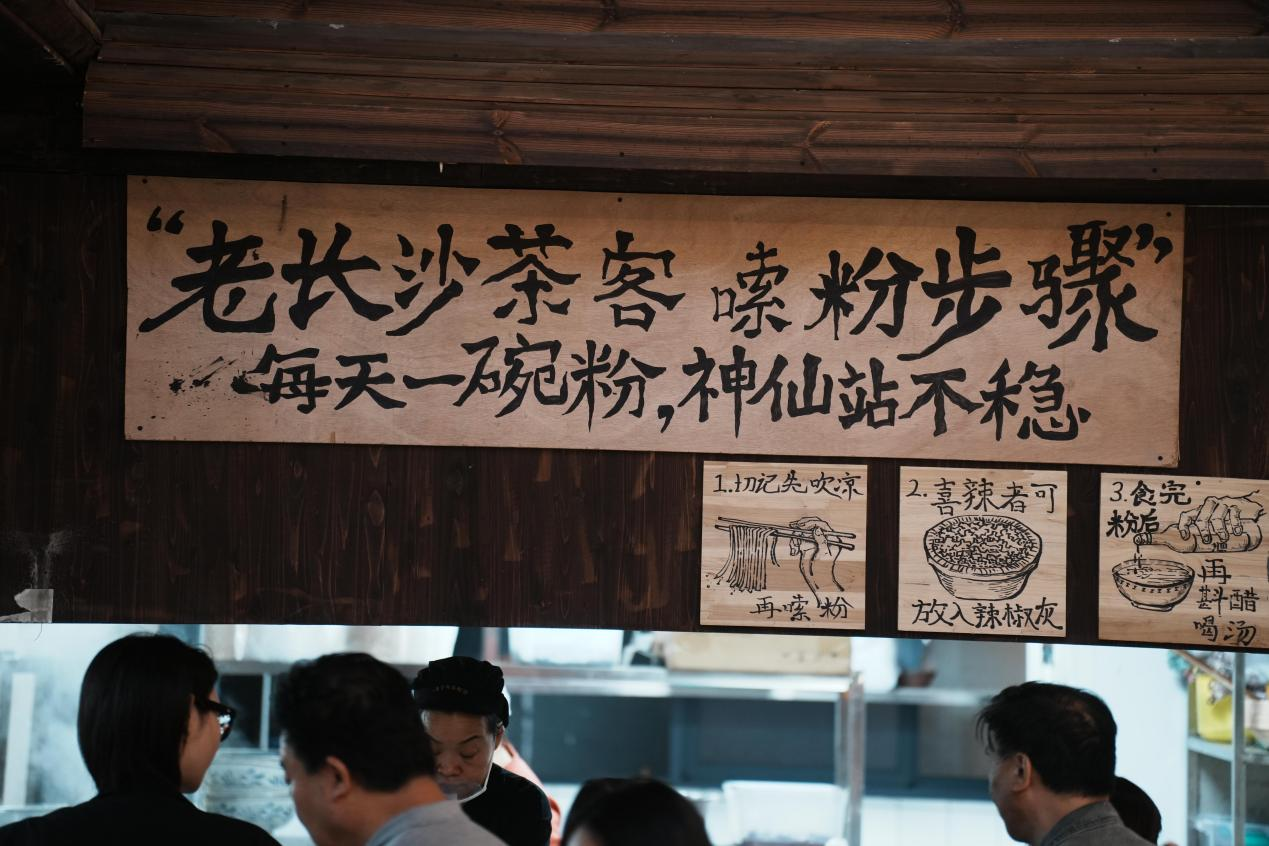 “老长沙茶客嗦粉步骤”
每天一碗粉,神仙站不稳
1.切记先吹凉
再嗦粉
2.喜辣者可
放入辣椒灰
3.食完
粉后
再
斟醋
喝汤